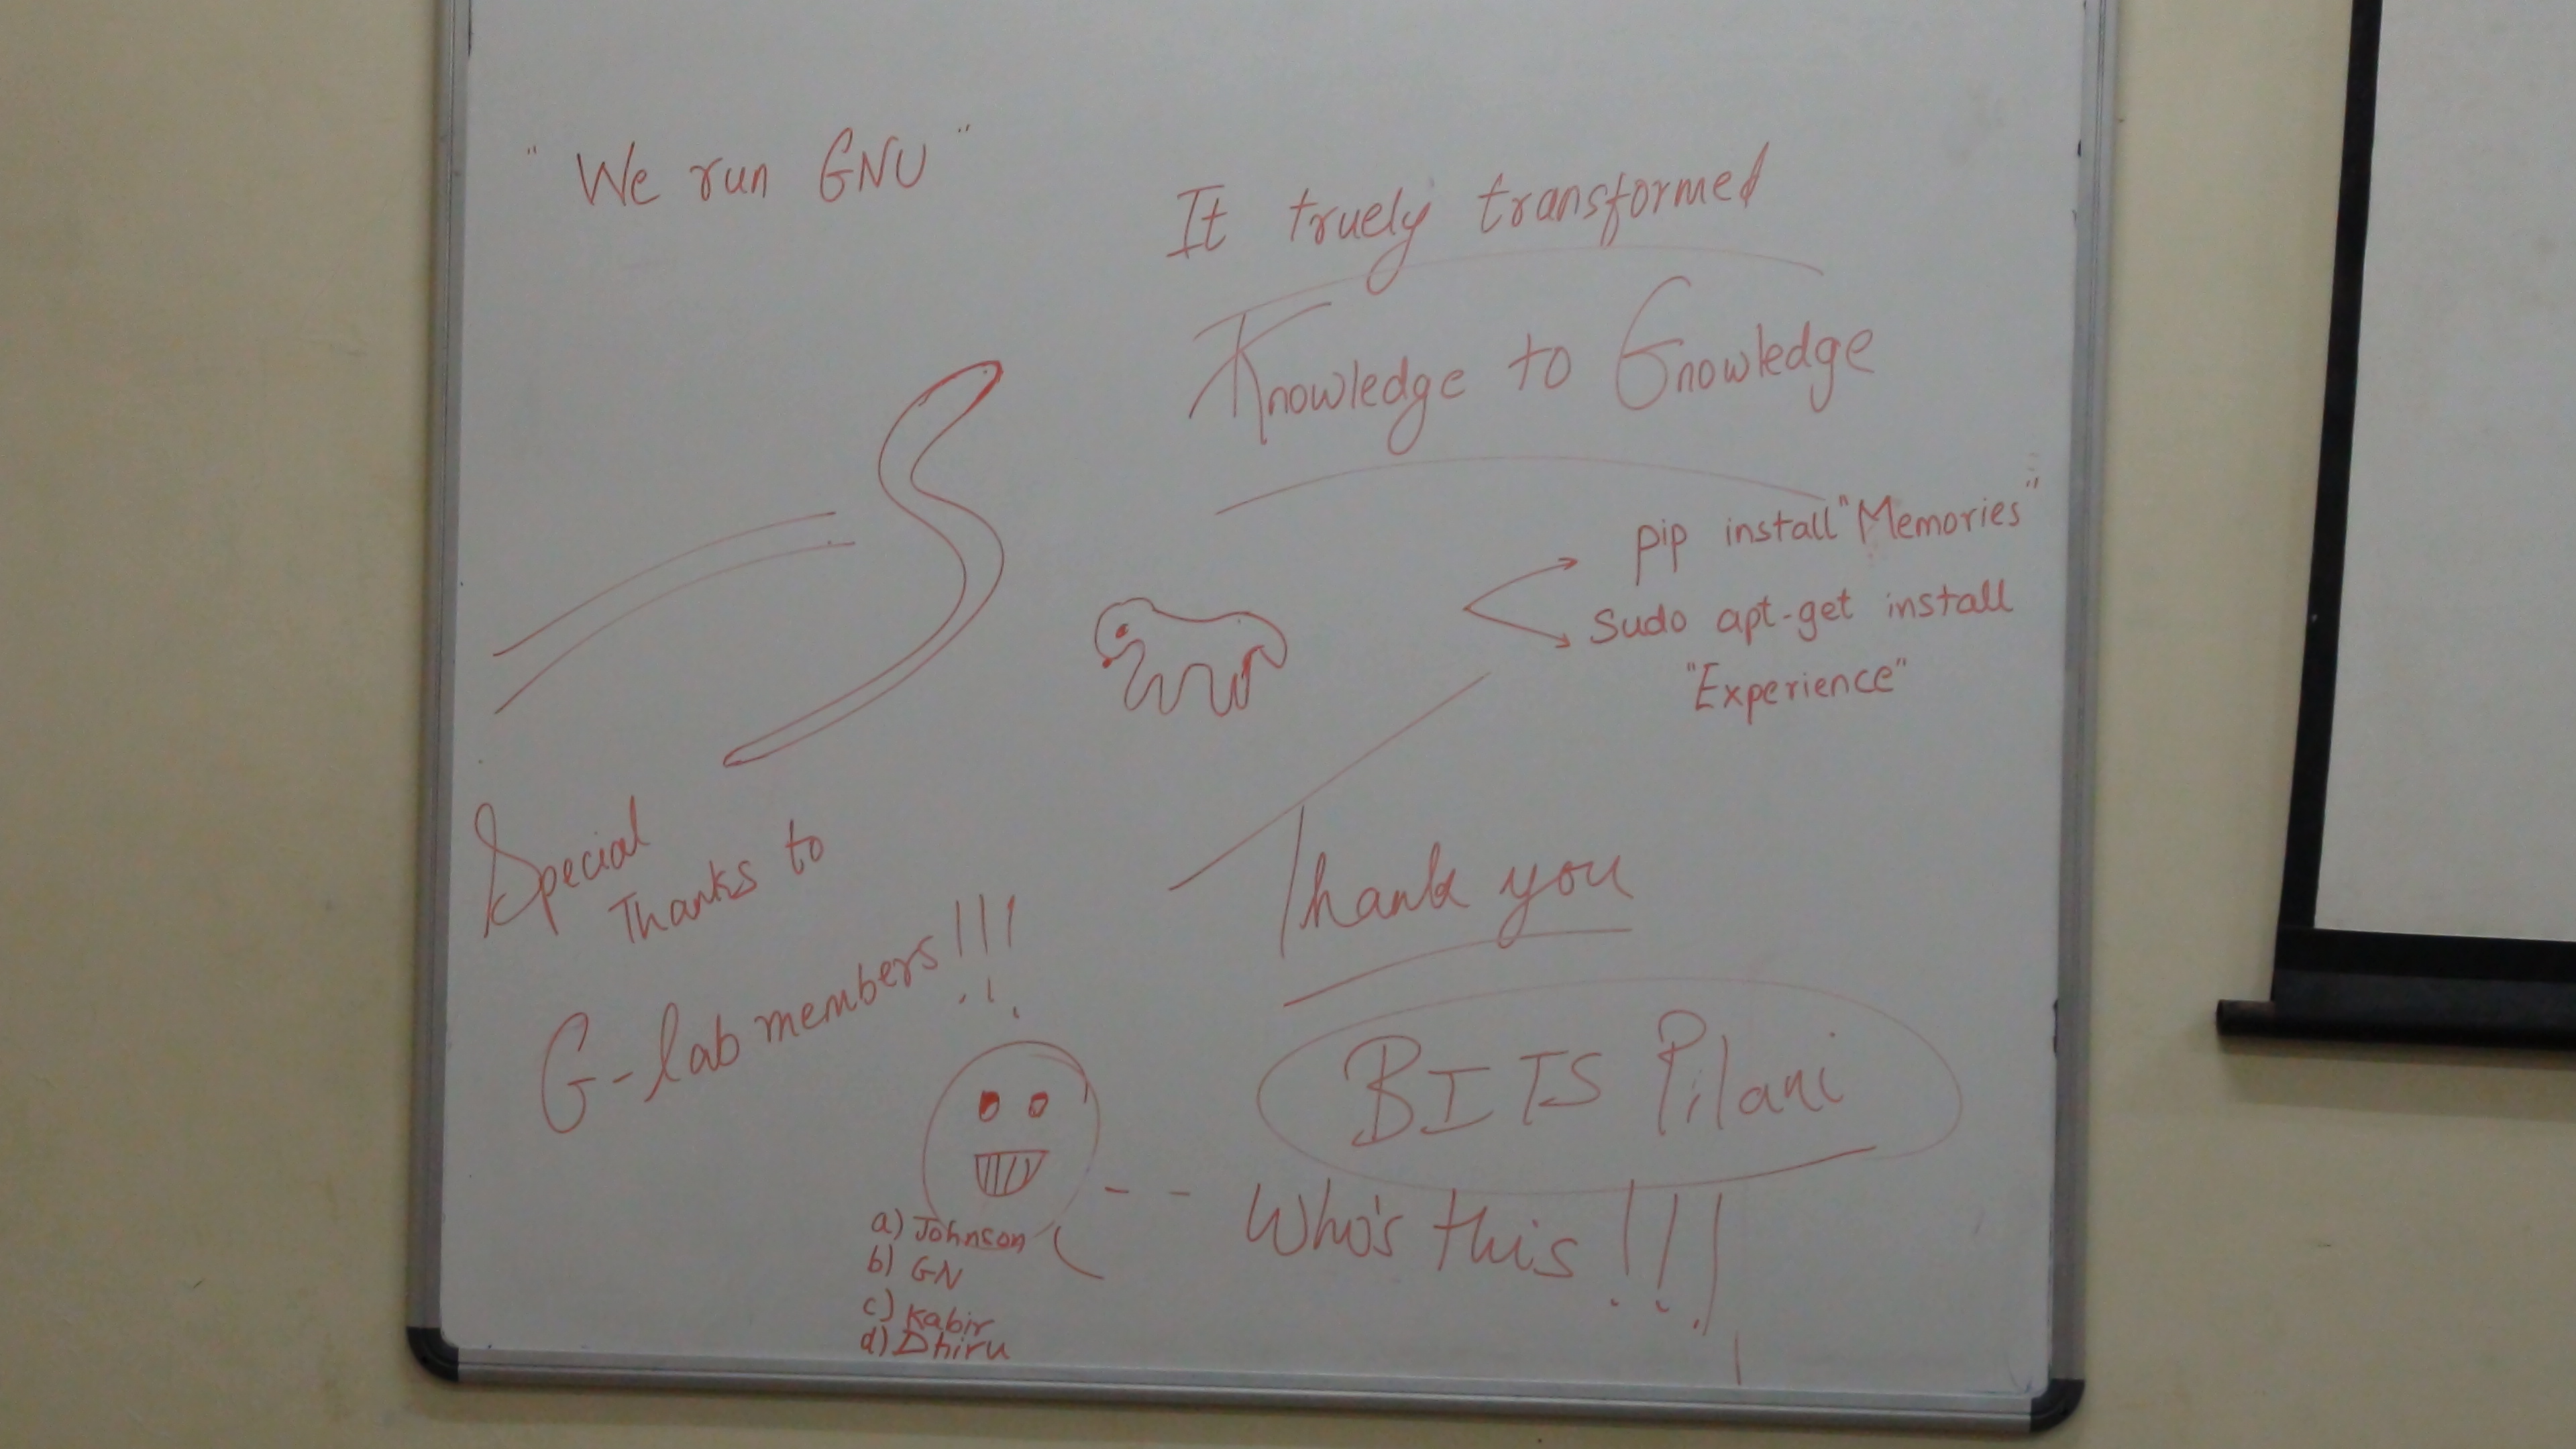 "We run GNU"
It truely transformed
Knowledge to Gnowledge
pip install "Memories"
Sudo apt-get install
"Experience"
Special
Thanks to
G-lab members!!!
Thank you
BITS Pilani
-- Who's this!!!
a) Johnson
b) GN
c) Kabir
d) Dhiru